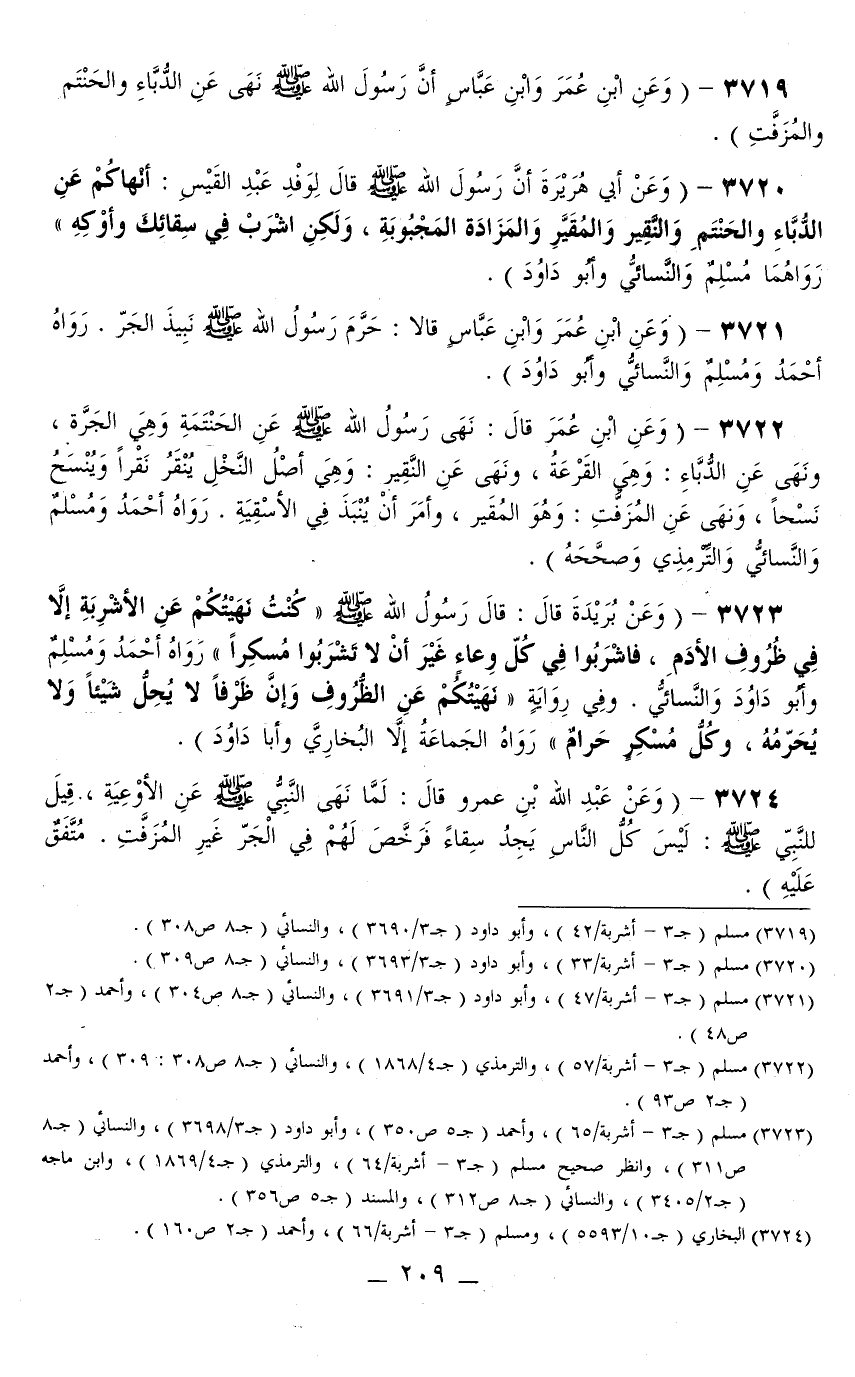 ٣٧١٩ – ( وَعَنِ ابْنِ عُمَرَ وَابْنِ عَبَّاسٍ أنَّ رَسُولَ الله ﷺ نَهَى عَنِ الدُّبَّاءِ والحَنْتَم
والمُزَفَّتِ ) .
٣٧٢٠ – ( وَعَنْ أبي هُرَيْرَةَ أنَّ رَسُولَ الله ﷺ قالَ لِوَفْدِ عَبْدِ القَيْسِ : أنْهاكُمْ عَنِ
الدُّبَّاءِ والحَنْتَمِ وَالنَّقِير وَالمُقَيَّرِ وَالمَزَادَة المَجْبُوبَةِ ، وَلَكِنِ اشْرَبْ فِي سِقائِكَ وأوْكِهِ »
رَوَاهُمَا مُسْلِمٌ وَالنَّسائيُّ وأبُو دَاوُدَ ) .
٣٧٢١ – ( وَعَنِ ابْنِ عُمَرَ وَابْنِ عَبَّاسٍ قالا : حَرَّمَ رَسُولُ الله ﷺ نَبِيذَ الجَرّ . رَوَاهُ
أحْمَدُ وَمُسْلِمٌ وَالنَّسائيُّ وأبُو دَاوُدَ ) .
٣٧٢٢ – ( وَعَنِ ابْنِ عُمَرَ قالَ : نَهَى رَسُولُ الله ﷺ عَنِ الحَنْتَمَةِ وَهِيَ الجَرَّة ،
ونَهَى عَنِ الدُّبَّاءِ : وَهِيَ القَرْعَةُ ، ونَهَى عَنِ النَّقِير : وَهِيَ أصْلُ النَّخْلِ يُنْقَرُ نَقْراً وَيُنْسَحُ
نَسْحاً ، وَنهَى عَنِ المُزَفَّتِ : وَهُوَ المُقَير ، وأمَرَ أنْ يُنْبَذَ فِي الأسْقِيَةِ . رَوَاهُ أحْمَدُ وَمُسْلمٌ
وَالنَّسائيُّ وَالتِّرْمِذِي وَصحَّحَهُ ) .
٣٧٢٣ – ( وَعَنْ بُرَيْدَةَ قالَ : قالَ رَسُولُ الله ﷺ « كُنْتُ نَهَيْتُكُمْ عَنِ الأشْرِبَةِ إلَّا
فِي ظُرُوفِ الأدَم ، فاشْرَبُوا فِي كُلّ وِعاءٍ غَيْرَ أنْ لا تَشْرَبُوا مُسكِراً » رَوَاهُ أحْمَدُ وَمُسْلِمٌ
وأبُو دَاوُدَ وَالنَّسائيُّ . وفي رِوَايَةٍ « نَهَيْتُكُمْ عَنِ الظُّرُوفِ وَإنَّ ظَرْفاً لا يُحِلُّ شَيْئاً وَلا
يُحَرّمُهُ ، وكُلُّ مُسْكِرٍ حَرامٌ » رَوَاهُ الجَماعَةُ إلَّا البُخارِيَّ وأبا دَاوُدَ ) .
٣٧٢٤ – ( وَعَنْ عَبْدِ الله بْنِ عمرو قالَ : لَمَّا نَهَى النَّبِيُّ ﷺ عَنِ الأوْعِيَةِ ، قِيلَ
للنَّبِيّ ﷺ : لَيْسَ كُلُّ النَّاسِ يَجِدُ سِقاءً فَرَخَّصَ لَهُمْ فِي الْجَرّ غَيرِ المُزَفَّتِ . مُتَّفَقٌ
عَلَيْهِ ) .
(٣٧١٩) مسلم ( جـ٣ – أشربة/٤٢ ) ، وأبو داود ( جـ٣/٣٦٩٠ ) ، والنسائي ( جـ٨ ص٣٠٨ ) .
(٣٧٢٠) مسلم ( جـ٣ – أشربة/٣٣ ) ، وأبو داود ( جـ٣/٣٦٩٣ ) ، والنسائي ( جـ٨ ص٣٠٩ ) .
(٣٧٢١) مسلم ( جـ٣ – أشربة/٤٧ ) ، وأبو داود ( جـ٣/٣٦٩١ ) ، والنسائي ( جـ٨ ص٣٠٤ ) ، وأحمد ( جـ٢
ص٤٨ ) .
(٣٧٢٢) مسلم ( جـ٣ – أشربة/٥٧ ) ، والترمذي ( جـ٤/١٨٦٨ ) ، والنسائي ( جـ٨ ص٣٠٨ : ٣٠٩ ) ، وأحمد
( جـ٢ ص٩٣ ) .
(٣٧٢٣) مسلم ( جـ٣ – أشربة/٦٥ ) ، وأحمد ( جـ٥ ص٣٥٠ ) ، وأبو داود ( جـ٣/٣٦٩٨ ) ، والنسائي ( جـ٨
ص٣١١ ) ، وانظر صحيح مسلم ( جـ٣ – أشربة/٦٤ ) ، والترمذي ( جـ٤/١٨٦٩ ) ، وابن ماجه
( جـ٢/٣٤٠٥ ) ، والنسائي ( جـ٨ ص٣١٢ ) ، والمسند ( جـ٥ ص٣٥٦ ) .
(٣٧٢٤) البخاري ( جـ١٠/٥٥٩٣ ) ، ومسلم ( جـ٣ – أشربة/٦٦ ) ، وأحمد ( جـ٢ ص١٦٠ ) .
– ٢٠٩ –